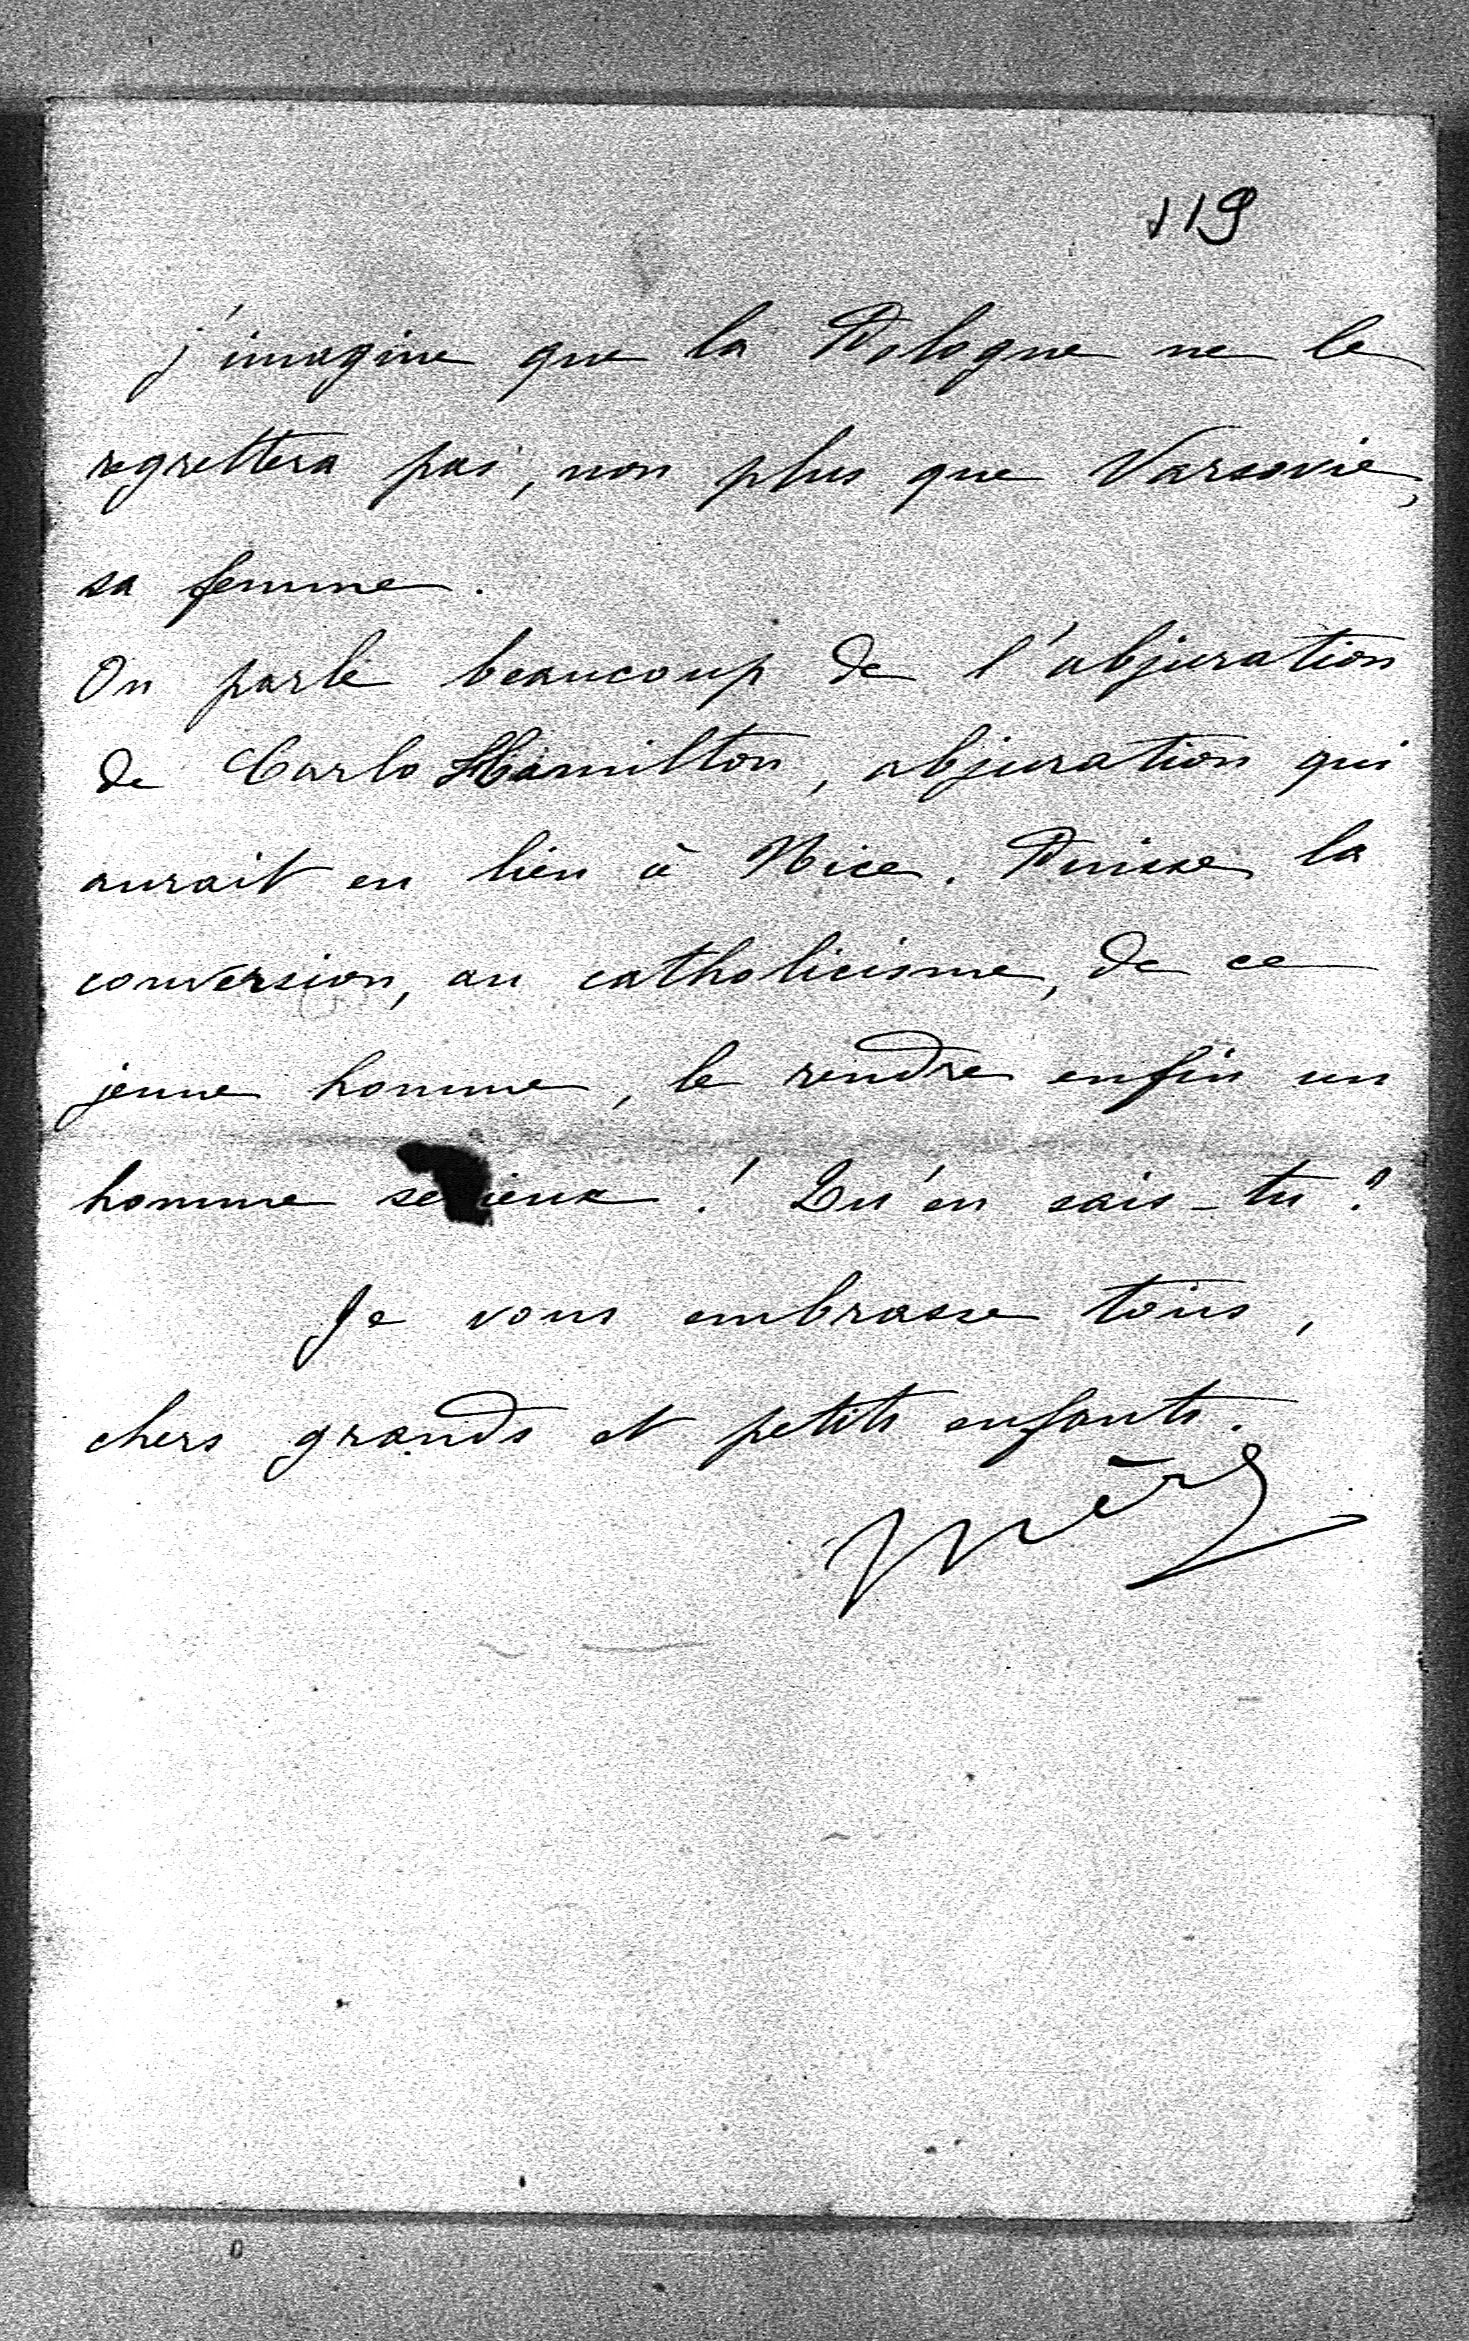 119
j'imagine que la Pologne ne le
regrettera pas, non plus que Varsovie,
sa femme.
On parle beaucoup de l'abjuration
de Carlo Hamilton, abjuration qui
aurait eu lieu à Nice. Puisse la
conversion, au catholicisme, de ce
jeune homme, le rendre enfin un
homme sérieux ! Qu'en sais-tu ?
Je vous embrasse tous,
chers grands et petits enfants.
Mère